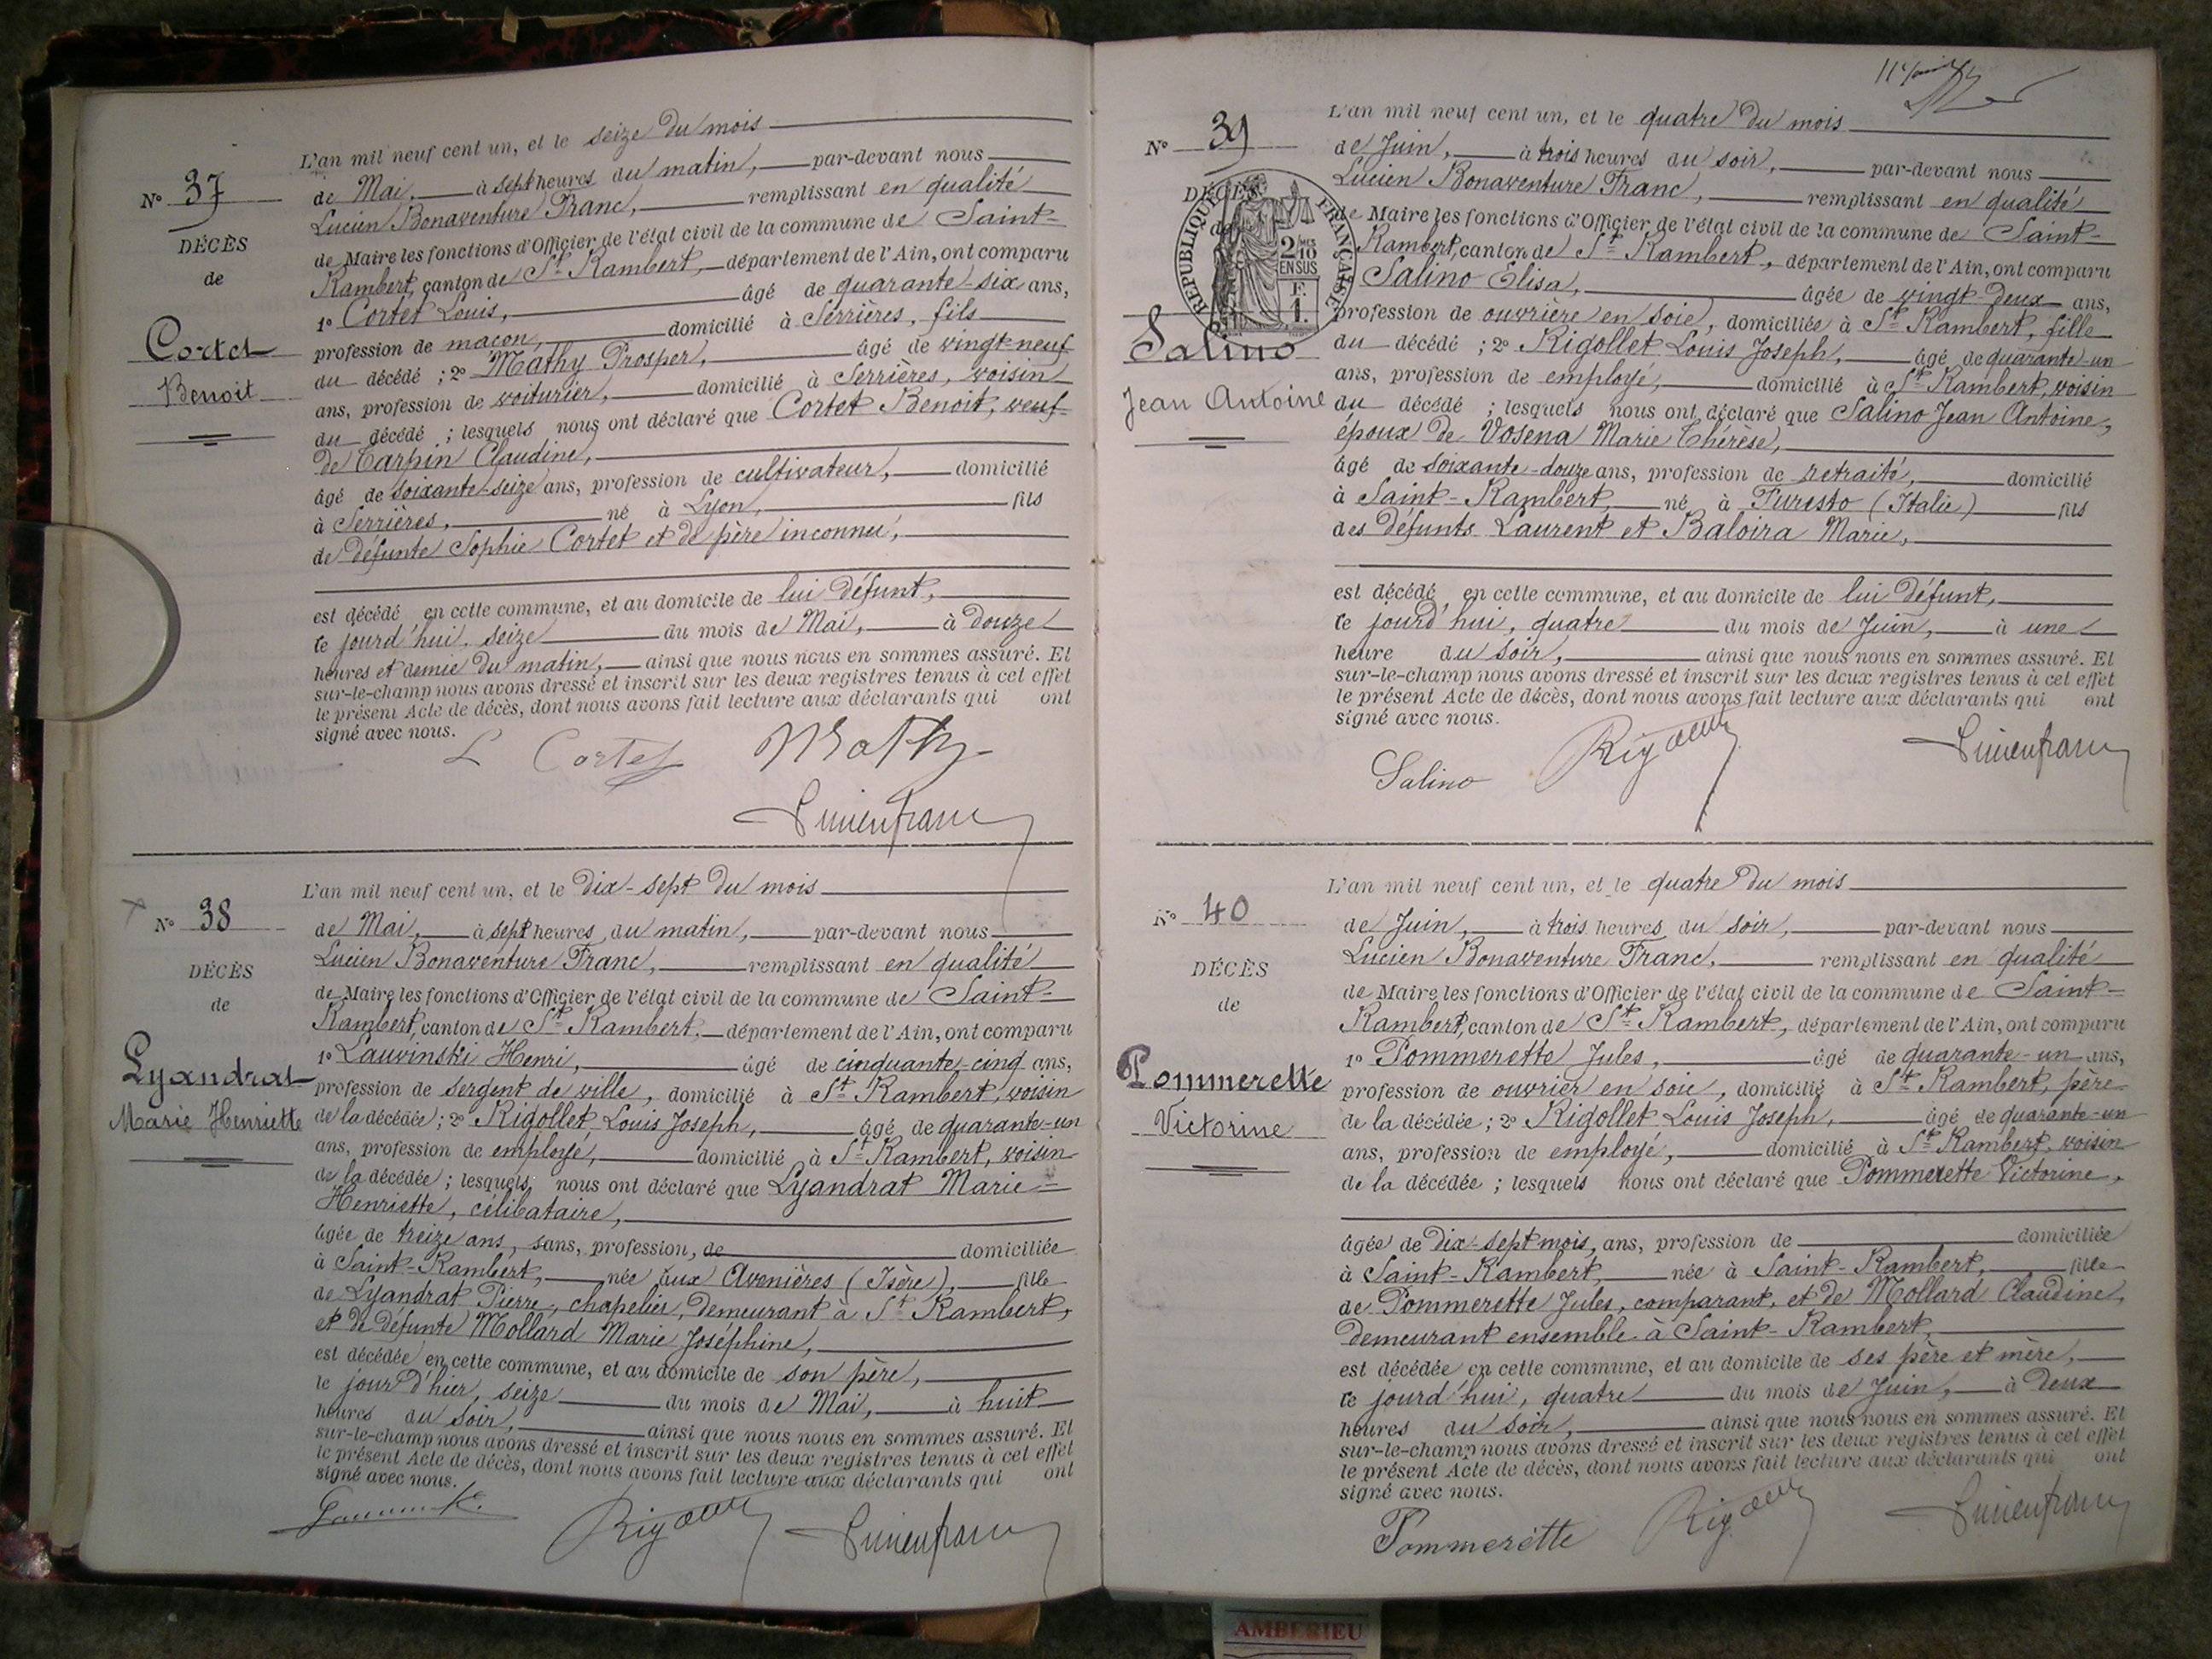 N° 37
DÉCÈS
de
Cortet
Benoit
L'an mil neuf cent un, et le seize du mois
de Mai, à sept heures du matin, par-devant nous
Lucien Bonaventure Franc, remplissant en qualité
de Maire les fonctions d'Officier de l'état civil de la commune de Saint-
Rambert, canton de St Rambert, département de l'Ain, ont comparu
1° Cortet Louis, âgé de quarante-six ans,
profession de maçon, domicilié à Serrières, fils
du décédé ; 2° Mathy Prosper, âgé de vingt-neuf
ans, profession de voiturier, domicilié à Serrières, voisin
du décédé ; lesquels nous ont déclaré que Cortet Benoit, veuf
de Tarpin Claudine,
âgé de soixante-seize ans, profession de cultivateur, domicilié
à Serrières, né à Lyon, fils
de défunte Sophie Cortet et de père inconnu,
est décédé en cette commune, et au domicile de lui défunt,
ce jourd'hui, seize du mois de Mai, à douze
heures et demie du matin, ainsi que nous nous en sommes assuré. Et
sur-le-champ nous avons dressé et inscrit sur les deux registres tenus à cet effet
le présent Acte de décès, dont nous avons fait lecture aux déclarants qui ont
signé avec nous.
L Cortet Mathy
Lucien franc
N° 38
DÉCÈS
de
Lyandrat
Marie Henriette
L'an mil neuf cent un, et le dix-sept du mois
de Mai, à sept heures du matin, par-devant nous
Lucien Bonaventure Franc, remplissant en qualité
de Maire les fonctions d'Officier de l'état civil de la commune de Saint-
Rambert, canton de St Rambert, département de l'Ain, ont comparu
1° Lauvinski Henri, âgé de cinquante-cinq ans,
profession de sergent de ville, domicilié à St Rambert, voisin
de la décédée ; 2° Rigollet Louis Joseph, âgé de quarante-un
ans, profession de employé, domicilié à St Rambert, voisin
de la décédée ; lesquels nous ont déclaré que Lyandrat Marie-
Henriette, célibataire,
âgée de treize ans, sans, profession, de domiciliée
à Saint-Rambert, née aux Avenières (Isère), fille
de Lyandrat Pierre, chapelier, demeurant à St Rambert,
et de défunte Mollard Marie Joséphine,
est décédée en cette commune, et au domicile de son père,
le jour d'hier, seize du mois de Mai, à huit
heures du soir, ainsi que nous nous en sommes assuré. Et
sur-le-champ nous avons dressé et inscrit sur les deux registres tenus à cet effet
le présent Acte de décès, dont nous avons fait lecture aux déclarants qui ont
signé avec nous.
Lucien franc
N° 39
DÉCÈS
de
Salino
Jean Antoine
RÉPUBLIQUE FRANÇAISE
2 MES
10
EN SUS
F.
1.
L'an mil neuf cent un, et le quatre du mois
de Juin, à trois heures du soir, par-devant nous
Lucien Bonaventure Franc, remplissant en qualité
de Maire les fonctions d'Officier de l'état civil de la commune de Saint-
Rambert, canton de St Rambert, département de l'Ain, ont comparu
Salino Élisa, âgée de vingt-deux ans,
profession de ouvrière en soie, domiciliée à St Rambert, fille
du décédé ; 2° Rigollet Louis Joseph, âgé de quarante-un
ans, profession de employé, domicilié à St Rambert, voisin
du décédé ; lesquels nous ont déclaré que Salino Jean Antoine,
époux de Vosena Marie Thérèse,
âgé de soixante-douze ans, profession de retraité, domicilié
à Saint-Rambert, né à Puresto (Italie) fils
des défunts Laurent et Baloira Marie,
est décédé en cette commune, et au domicile de lui défunt,
ce jourd'hui, quatre du mois de Juin, à une
heure du soir, ainsi que nous nous en sommes assuré. Et
sur-le-champ nous avons dressé et inscrit sur les deux registres tenus à cet effet
le présent Acte de décès, dont nous avons fait lecture aux déclarants qui ont
signé avec nous.
Salino
Lucien franc
N° 40
DÉCÈS
de
Pommerette
Victorine
L'an mil neuf cent un, et le quatre du mois
de Juin, à trois heures du soir, par-devant nous
Lucien Bonaventure Franc, remplissant en qualité
de Maire les fonctions d'Officier de l'état civil de la commune de Saint-
Rambert, canton de St Rambert, département de l'Ain, ont comparu
1° Pommerette Jules, âgé de quarante-un ans,
profession de ouvrier en soie, domicilié à St Rambert, père
de la décédée ; 2° Rigollet Louis Joseph, âgé de quarante-un
ans, profession de employé, domicilié à St Rambert, voisin
de la décédée ; lesquels nous ont déclaré que Pommerette Victorine,
âgée de dix-sept mois, ans, profession de domiciliée
à Saint-Rambert, née à Saint-Rambert, fille
de Pommerette Jules, comparant, et de Mollard Claudine,
demeurant ensemble à Saint-Rambert,
est décédée en cette commune, et au domicile de ses père et mère,
ce jourd'hui, quatre du mois de Juin, à deux
heures du soir, ainsi que nous nous en sommes assuré. Et
sur-le-champ nous avons dressé et inscrit sur les deux registres tenus à cet effet
le présent Acte de décès, dont nous avons fait lecture aux déclarants qui ont
signé avec nous.
Pommerette
Lucien franc
AMBERIEU